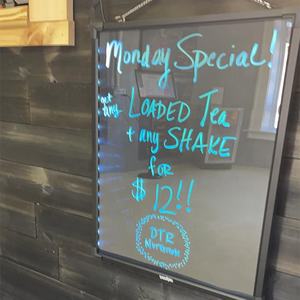 Monday Special!
get any LOADED Tea
+ any SHAKE
for
$12!!
DTR
NUTRITION